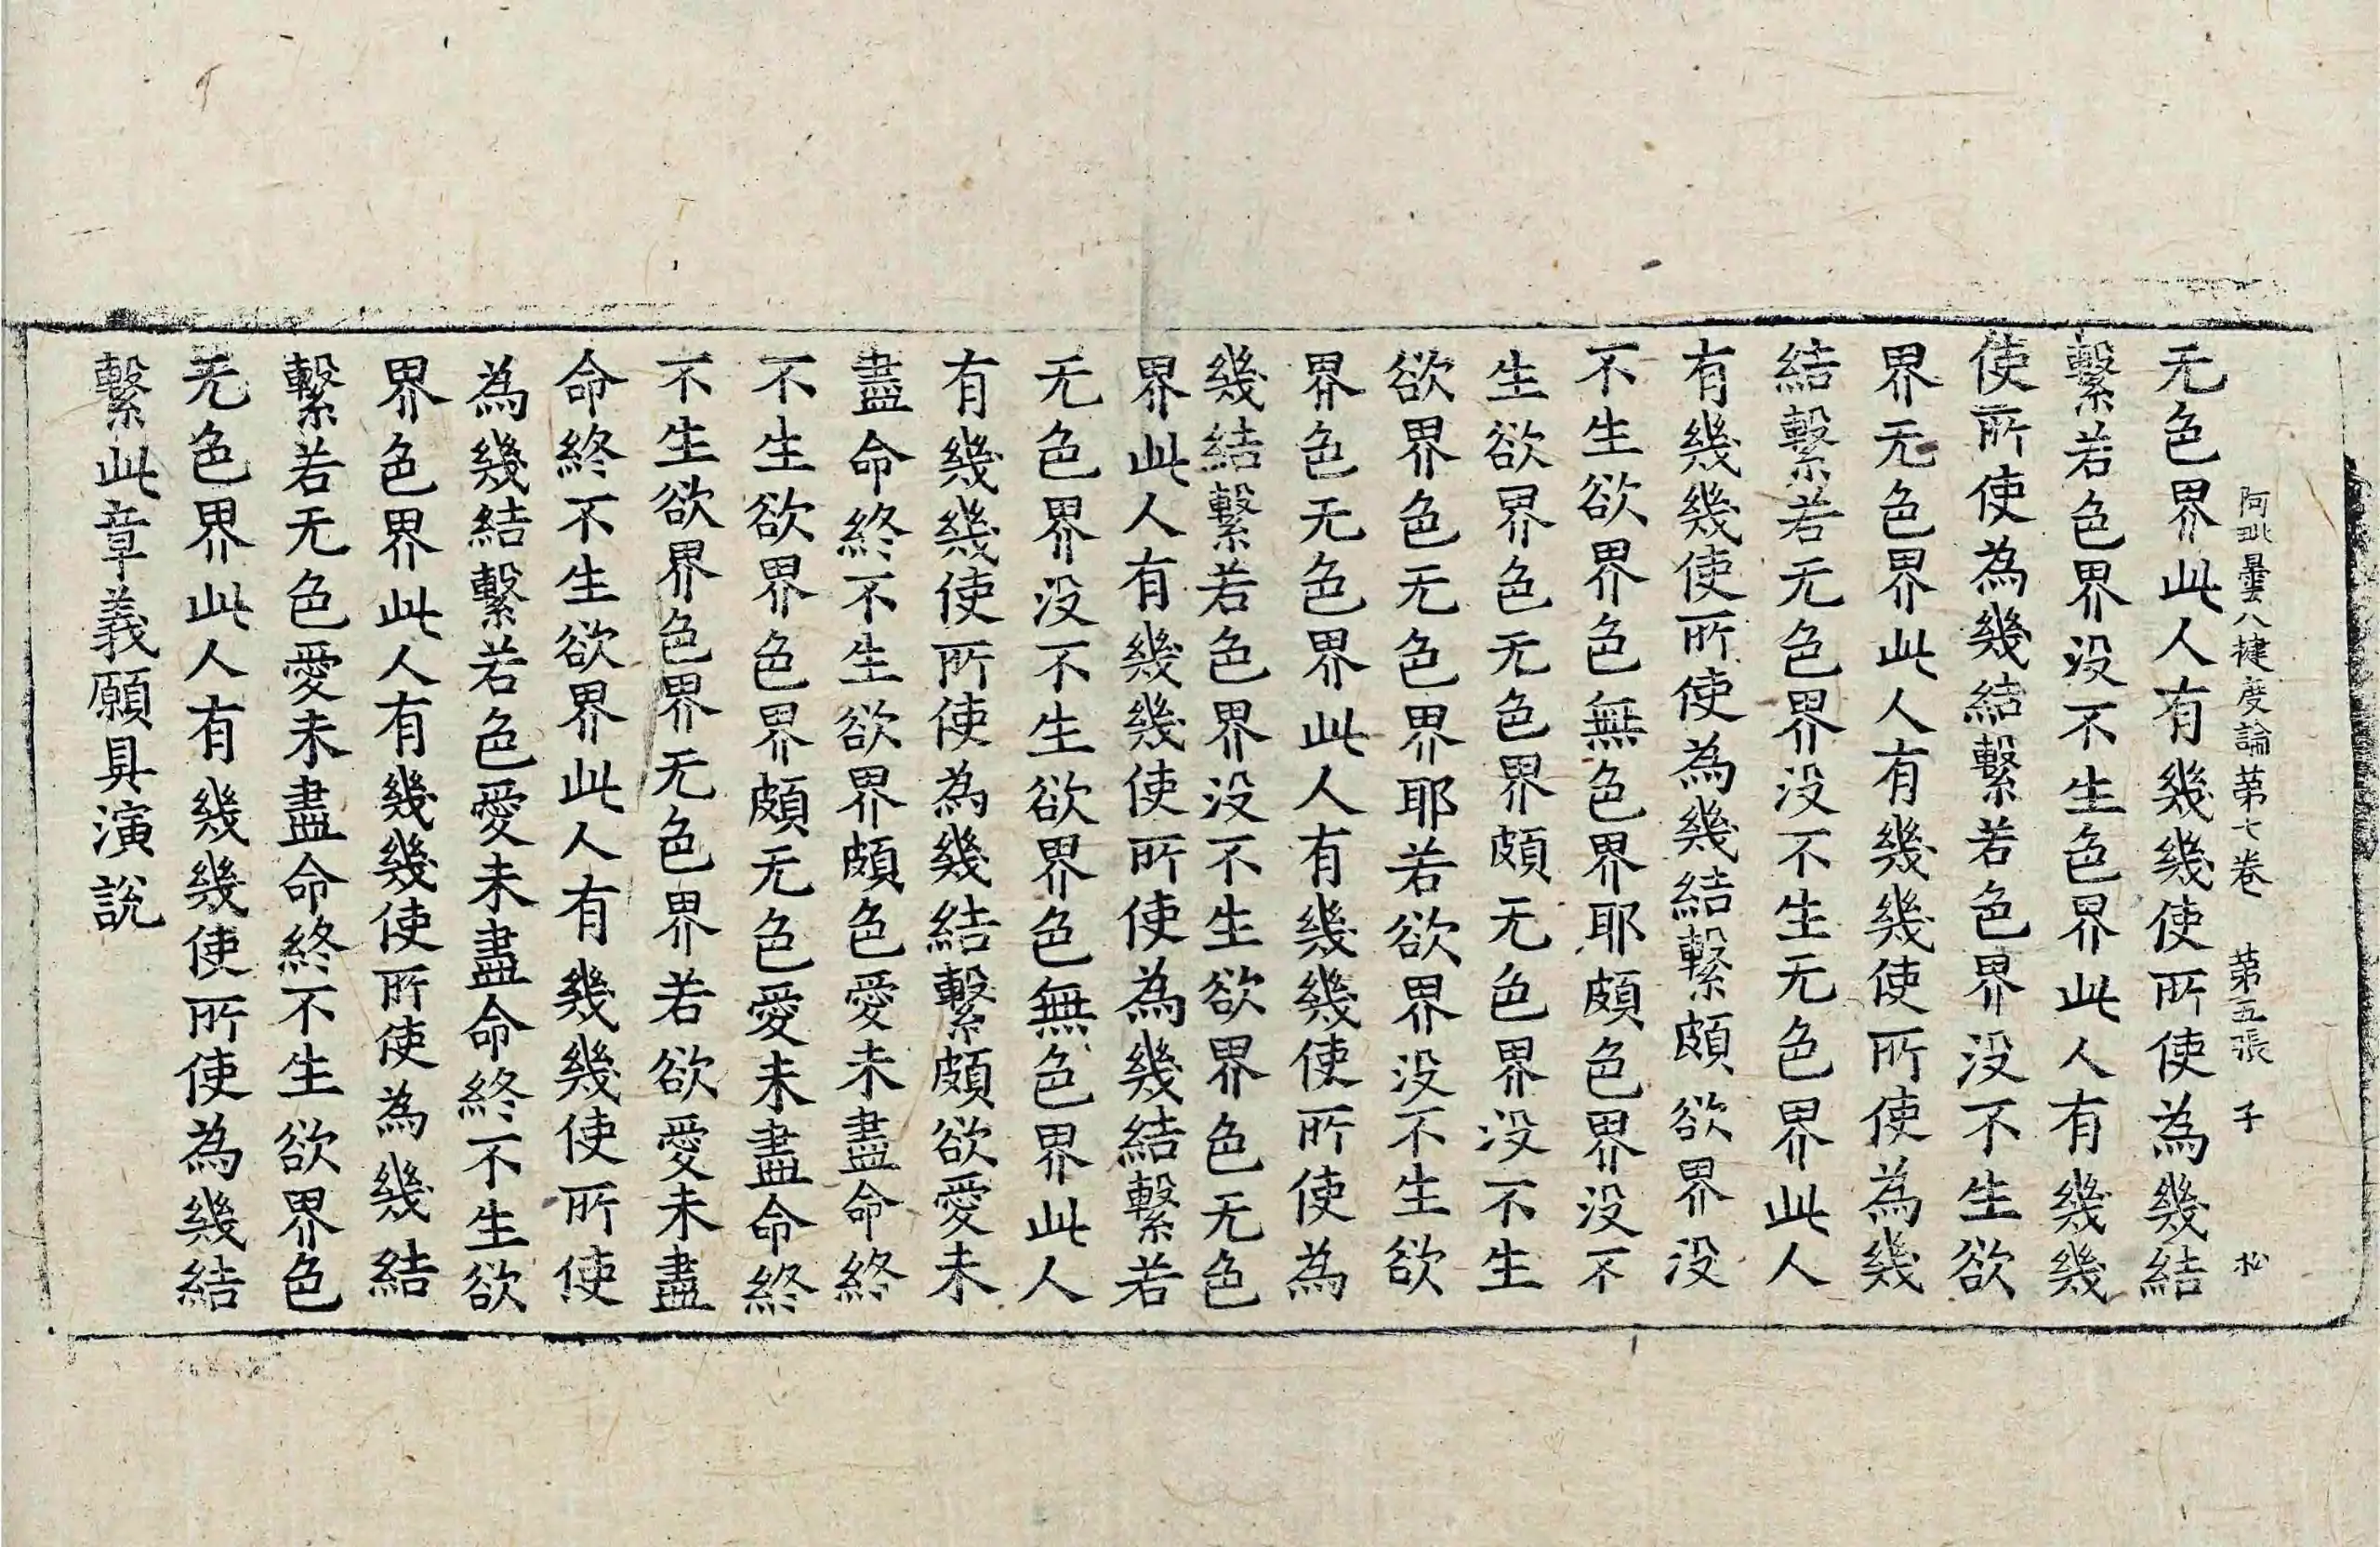 阿毗曇八揵度論第七卷　第五張　子　松
无色界此人有幾幾使所使為幾結
繫若色界没不生色界此人有幾幾
使所使為幾結繫若色界没不生欲
界无色界此人有幾幾使所使為幾
結繫若无色界没不生无色界此人
有幾幾使所使為幾結繫頗欲界没
不生欲界色無色界耶頗色界没不
生欲界色无色界頗无色界没不生
欲界色无色界耶若欲界没不生欲
界色无色界此人有幾幾使所使為
幾結繫若色界没不生欲界色无色
界此人有幾幾使所使為幾結繫若
无色界没不生欲界色無色界此人
有幾幾使所使為幾結繫頗欲愛未
盡命終不生欲界頗色愛未盡命終
不生欲界色界頗无色愛未盡命終
不生欲界色界无色界若欲愛未盡
命終不生欲界此人有幾幾使所使
為幾結繫若色愛未盡命終不生欲
界色界此人有幾幾使所使為幾結
繫若无色愛未盡命終不生欲界色
无色界此人有幾幾使所使為幾結
繫此章義願具演說